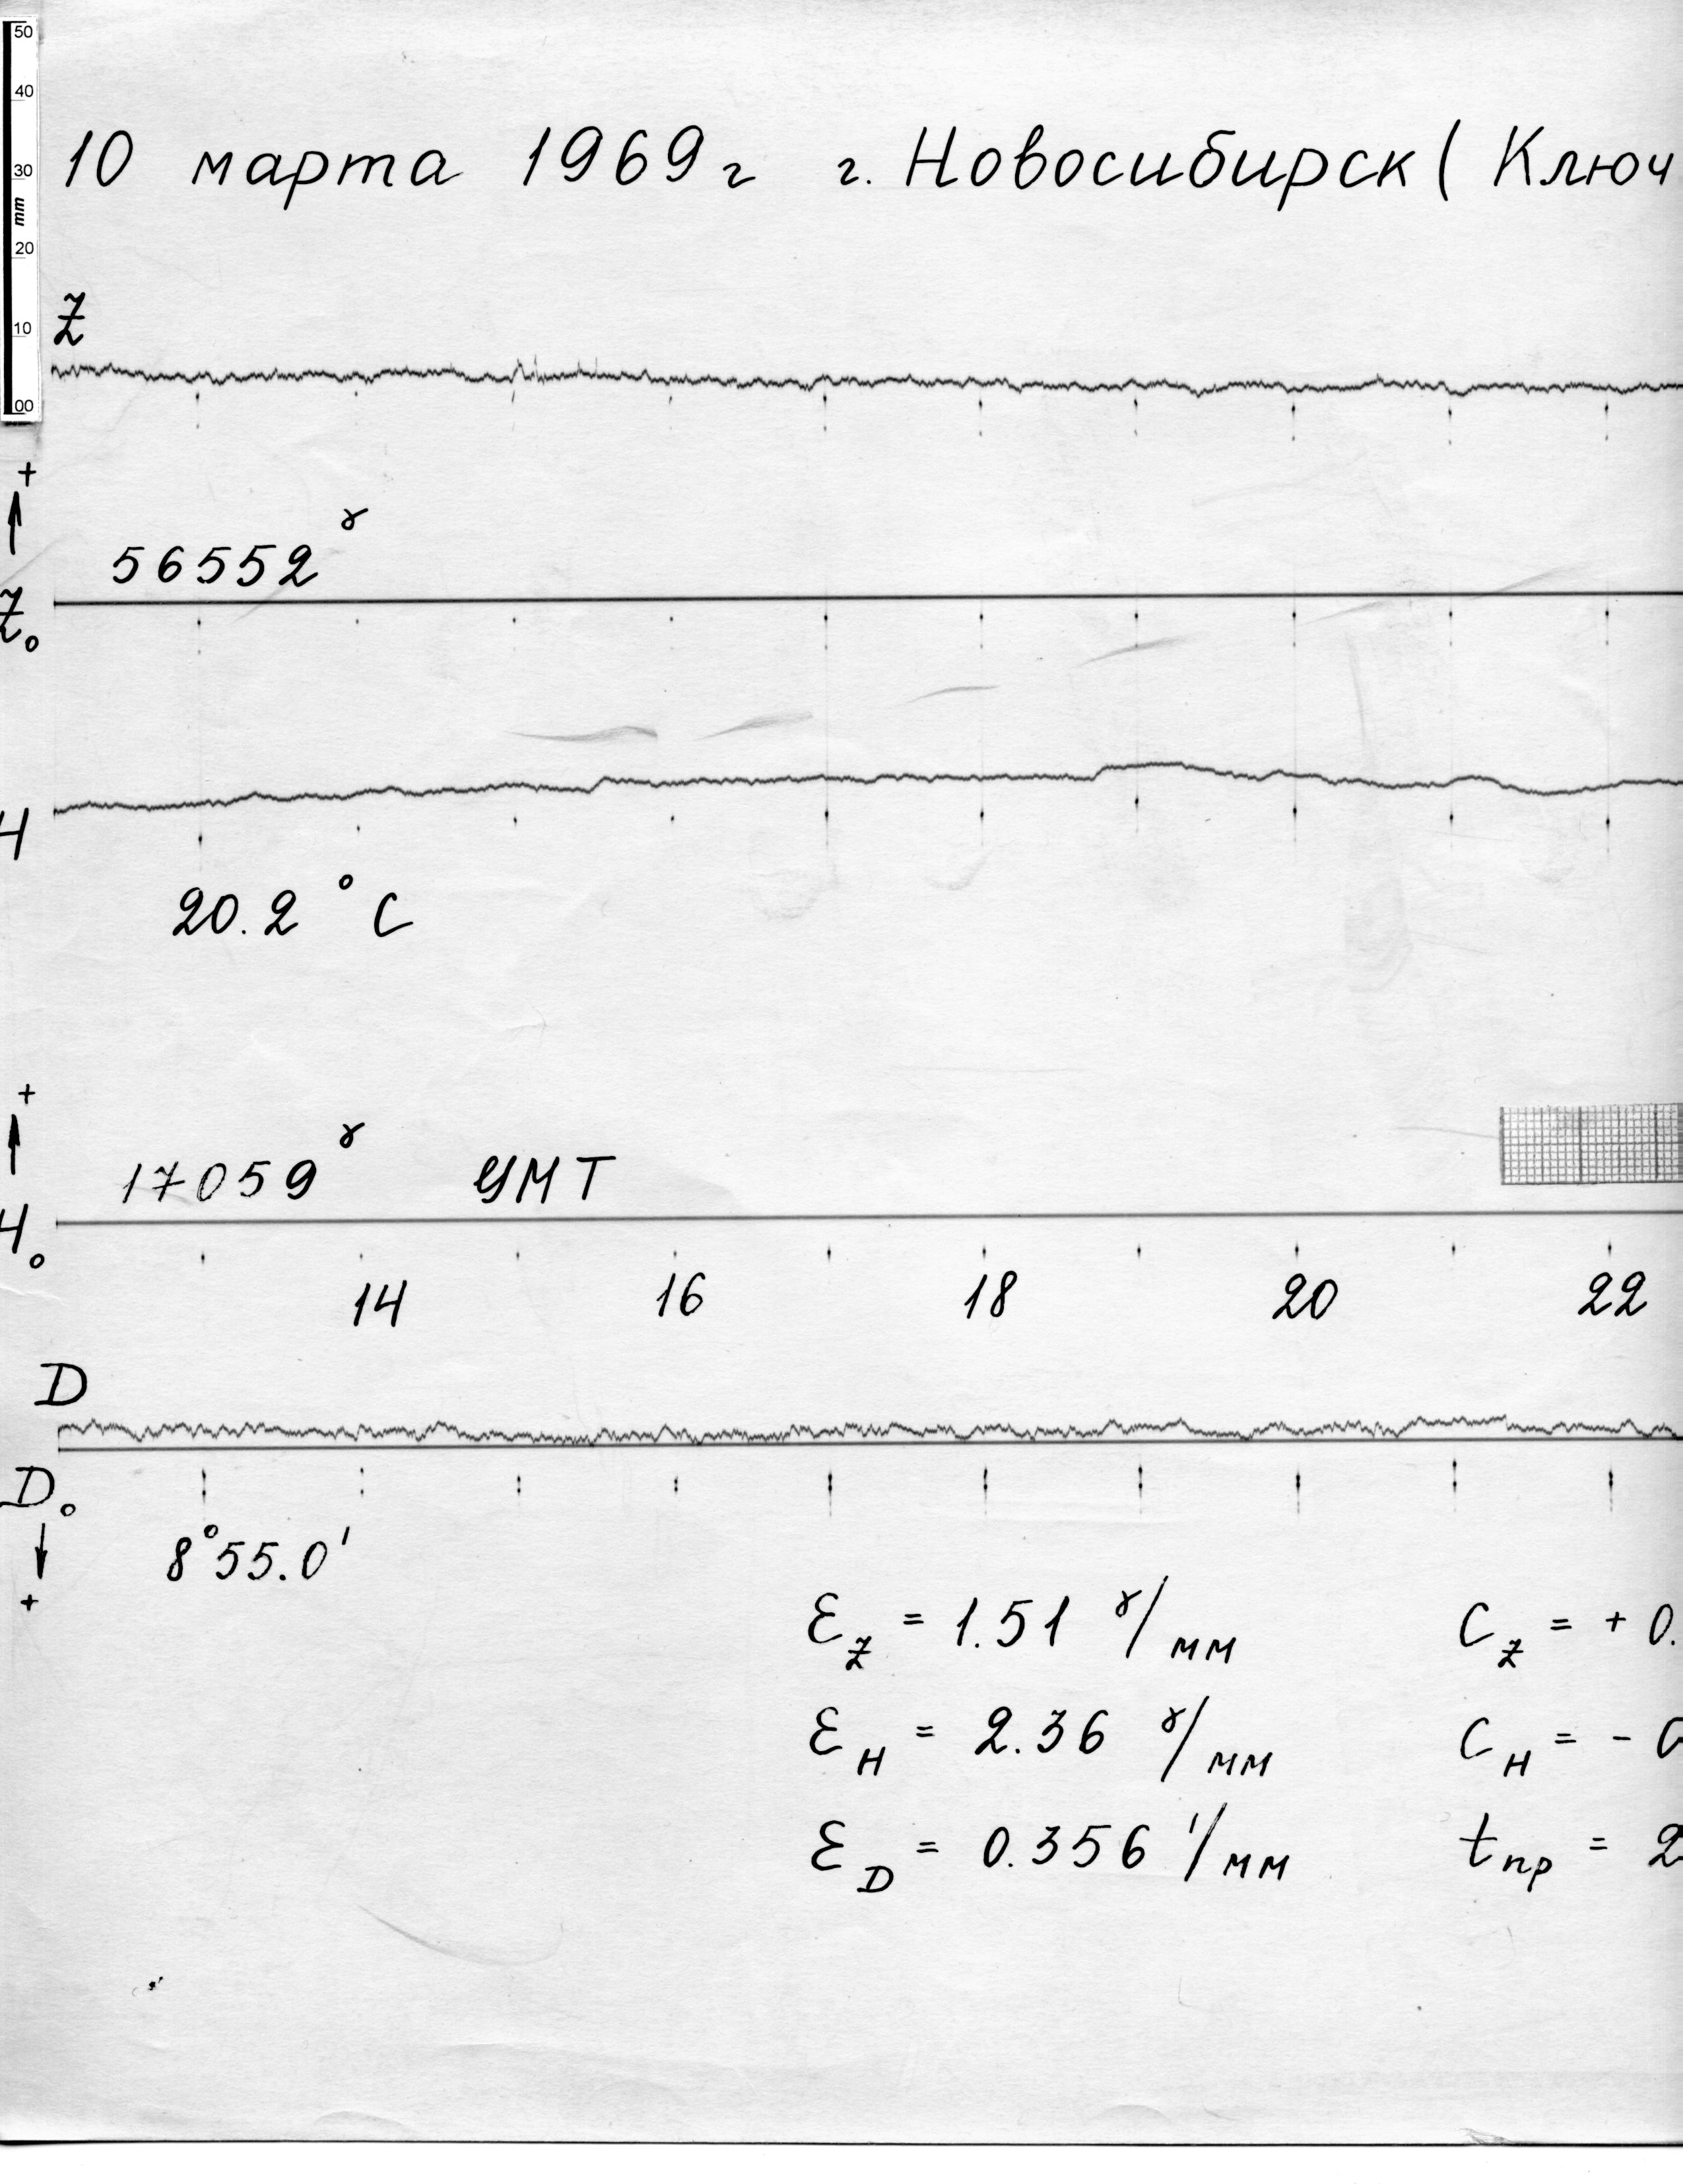 50
40
30
mm
20
10
00
10 марта 1969г г. Новосибирск ( Ключ
Z
+
56552 γ
Z₀
H
20.2 °C
+
17059 γ УМТ
H₀
14 16 18 20 22
D
D₀
8°55.0'
+
Ɛ_Z = 1.51 γ/мм C_Z = + 0.
Ɛ_H = 2.36 γ/мм C_H = -
Ɛ_D = 0.356 '/мм t_пр = 2